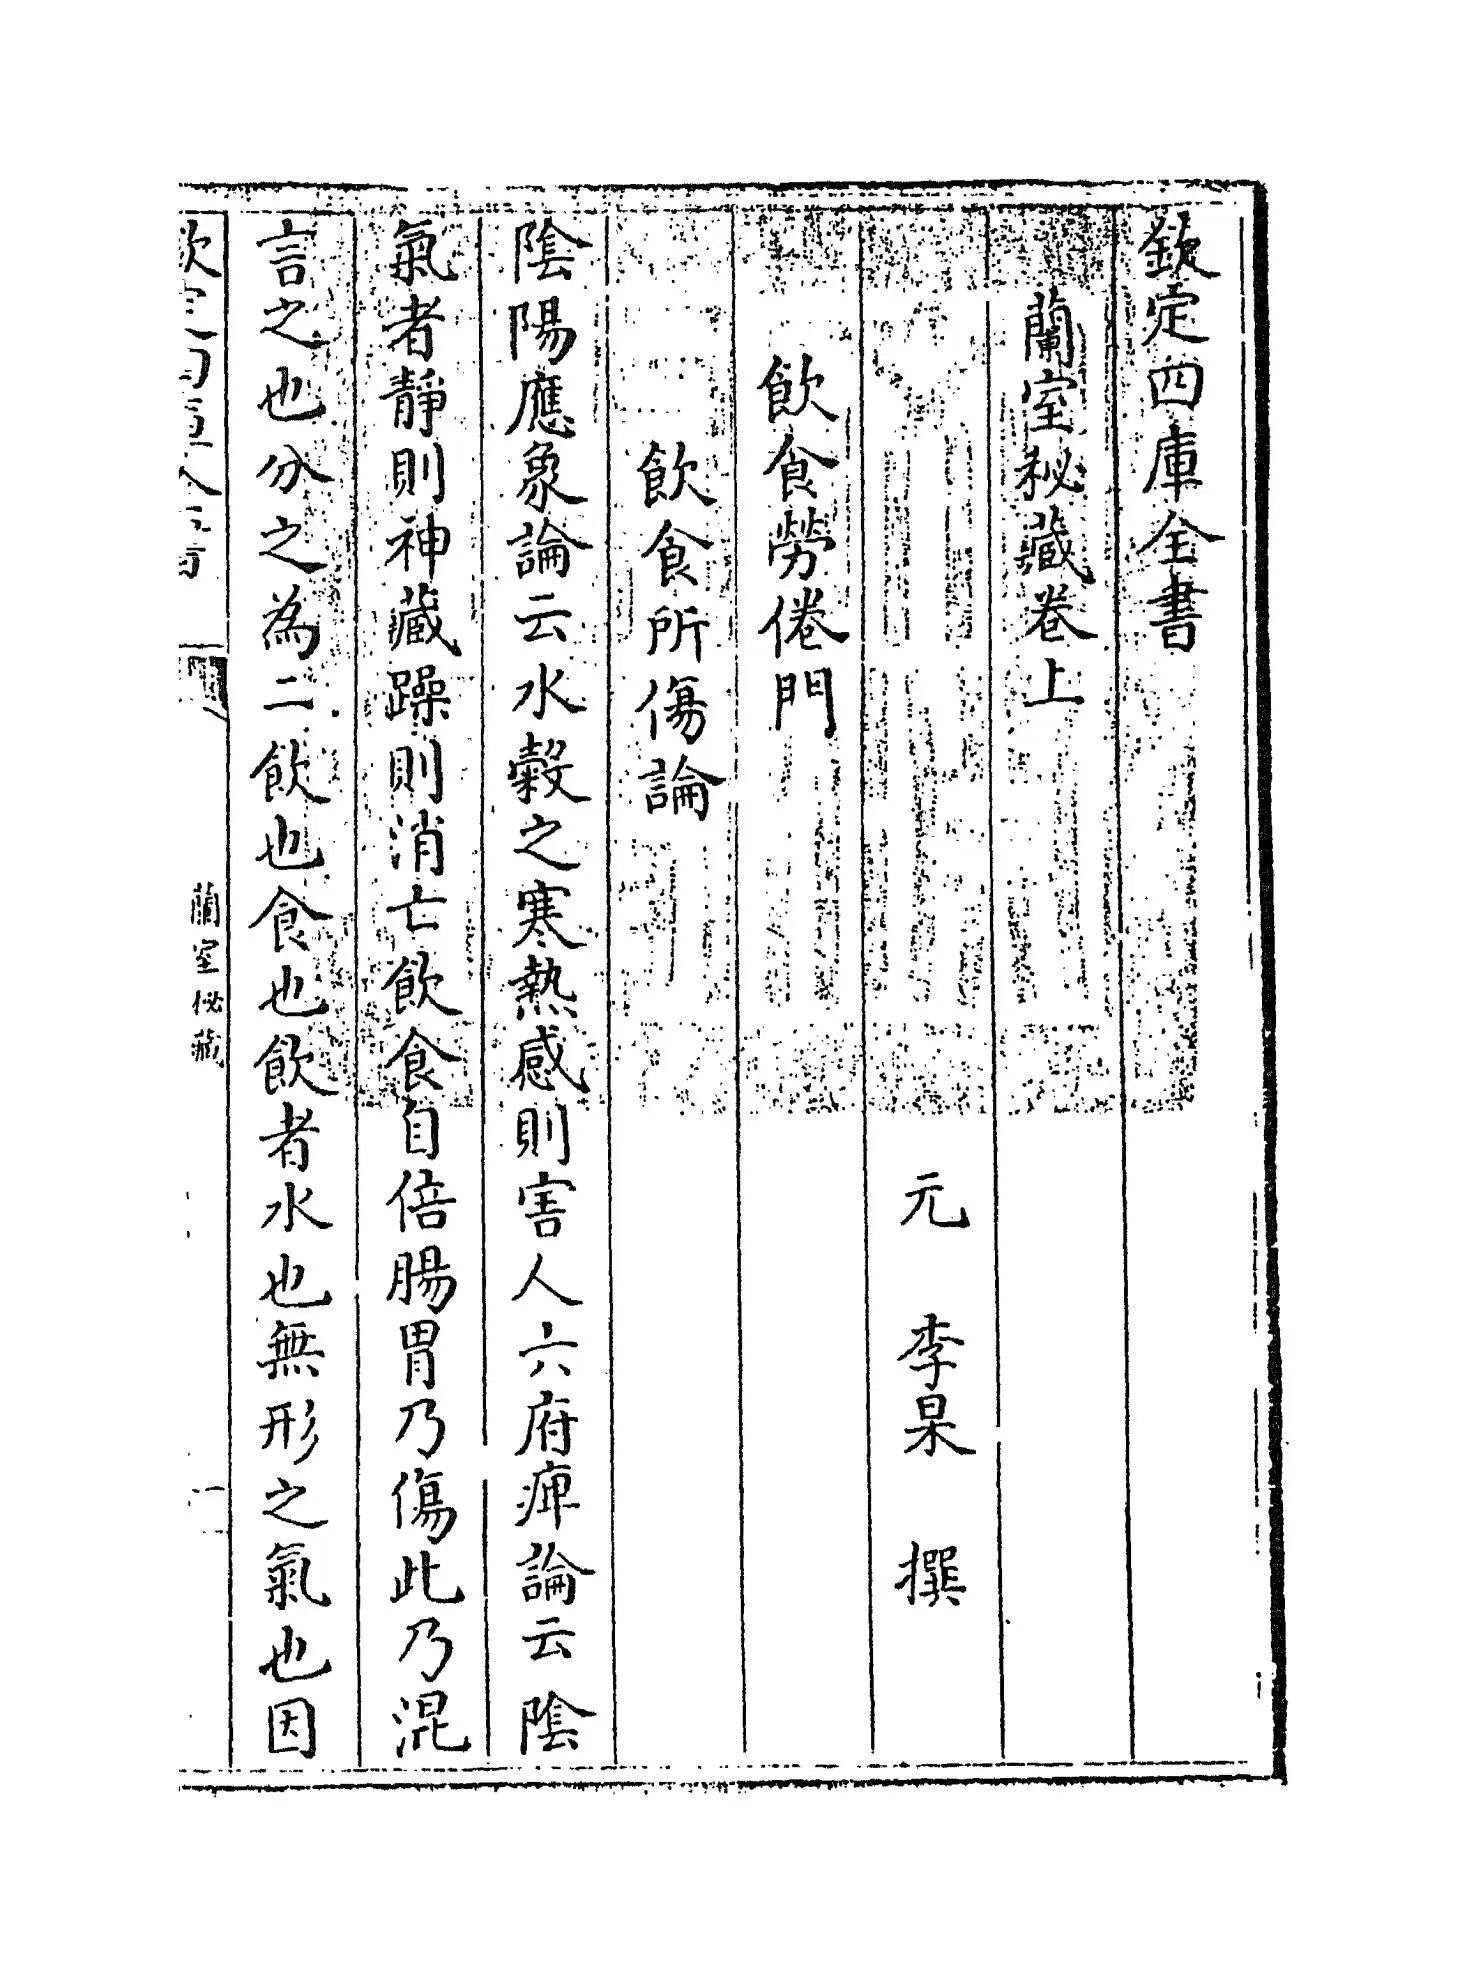 欽定四庫全書
蘭室秘藏卷上
元 李杲 撰
飲食勞倦門
飲食所傷論
陰陽應象論云水穀之寒熱感則害人六府痺論云陰
氣者靜則神藏躁則消亡飲食自倍腸胃乃傷此乃混
言之也分之為二飲也食也飲者水也無形之氣也因
欽定四庫全書
蘭室秘藏
一